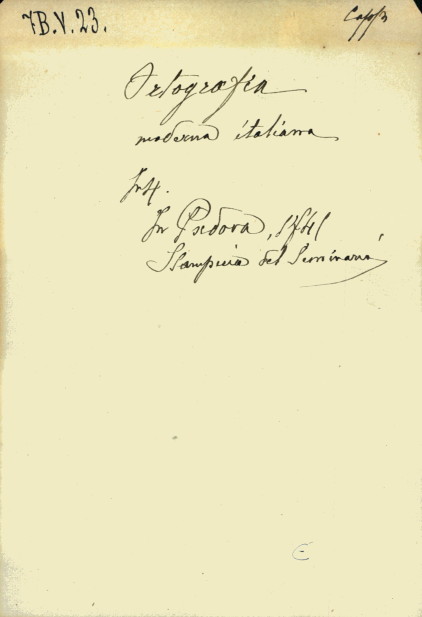 7B.V.23.
Ortografia
moderna italiana
In 4.
In Padova, 1741
Stamperia del Seminario